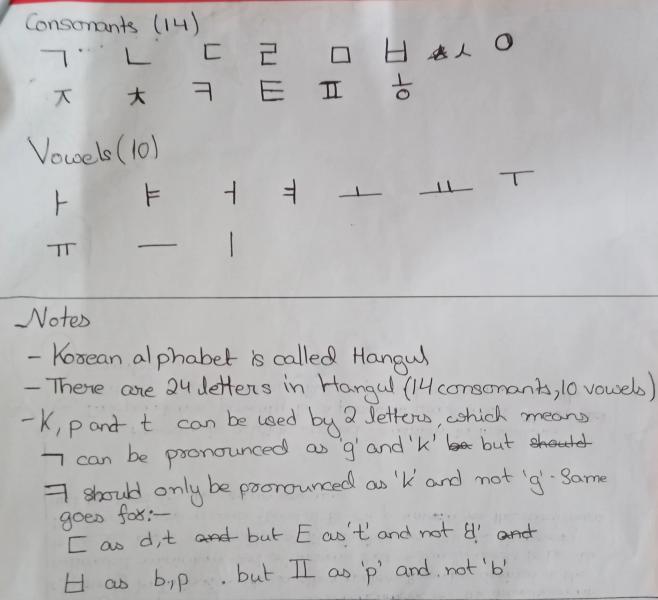 Consonants (14)
ㄱ ㄴ ㄷ ㄹ ㅁ ㅂ ㅅ ㅇ
ㅈ ㅊ ㅋ ㅌ ㅍ ㅎ
Vowels (10)
ㅏ ㅑ ㅓ ㅕ ㅗ ㅛ ㅜ
ㅠ ㅡ ㅣ
Notes
- Korean alphabet is called Hangul
- There are 24 letters in Hangul (14 consonants, 10 vowels)
- K, p and t can be used by 2 letters, which means
ㄱ can be pronounced as 'g' and 'k' but
ㅋ should only be pronounced as 'k' and not 'g'. Same
goes for:-
ㄷ as d,t but ㅌ as 't' and not 'd'.
ㅂ as b,p. but ㅍ as 'p' and not 'b'